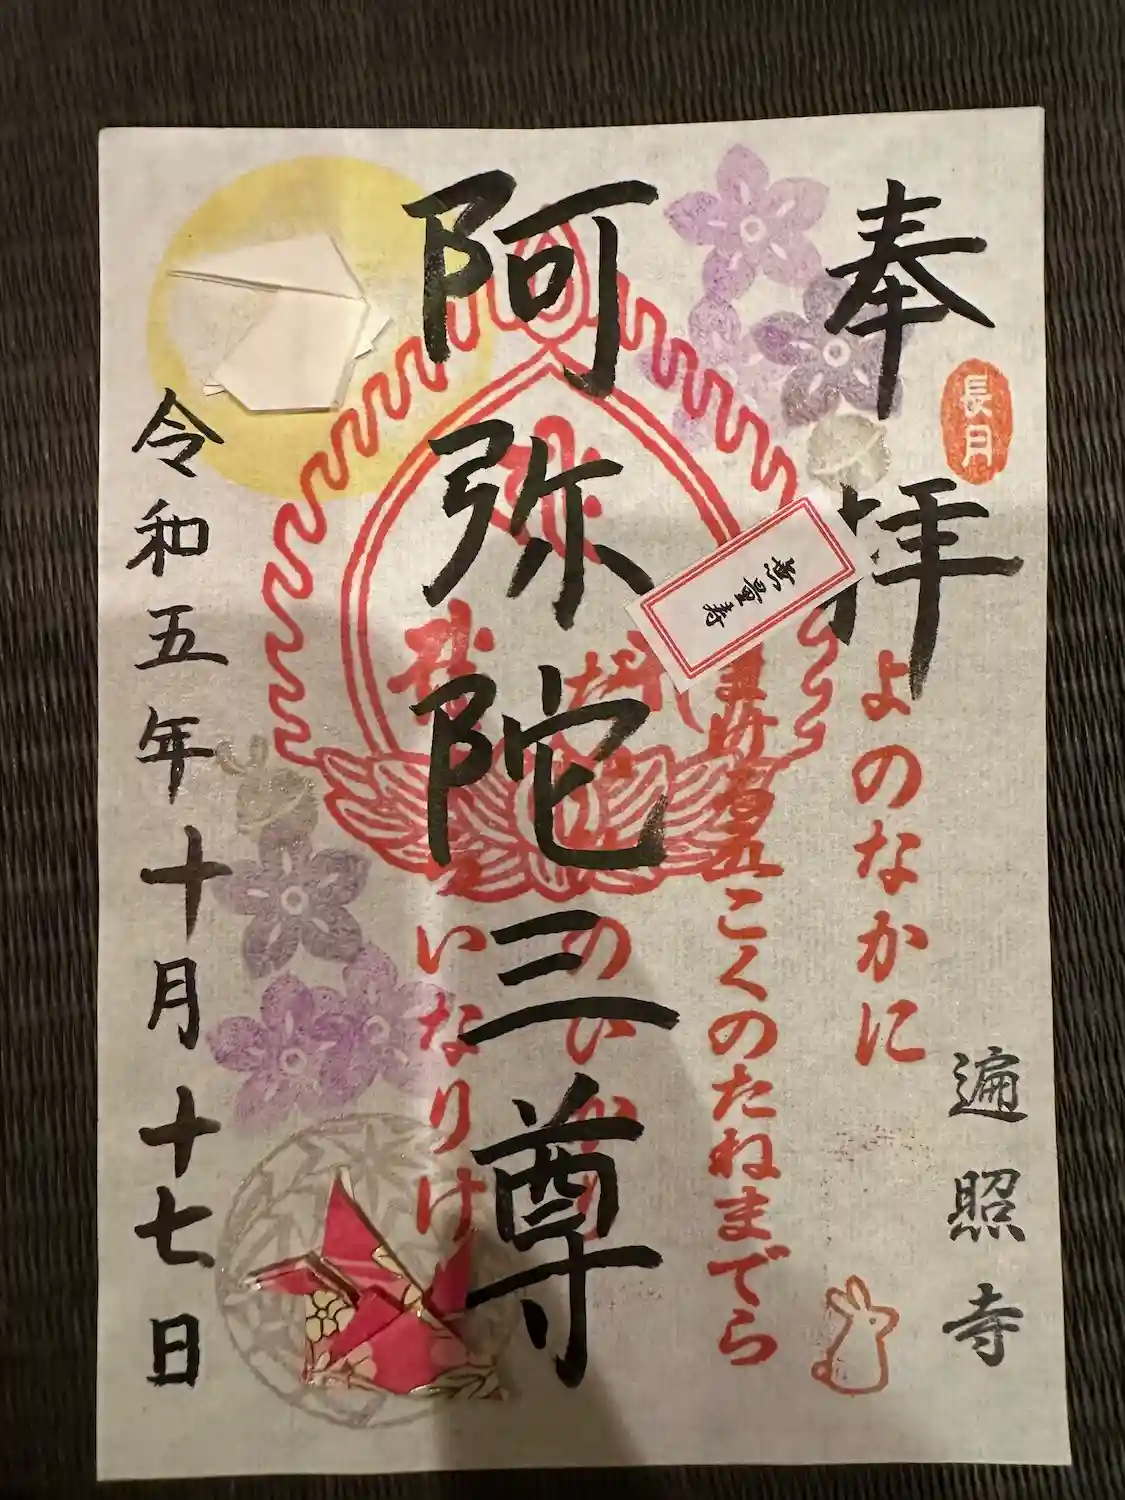 奉拝
長月
遍照寺
よのなかに
まけるな五こくのたねまでら
無量寿
阿弥陀三尊
いなりけ
令和五年十月十七日